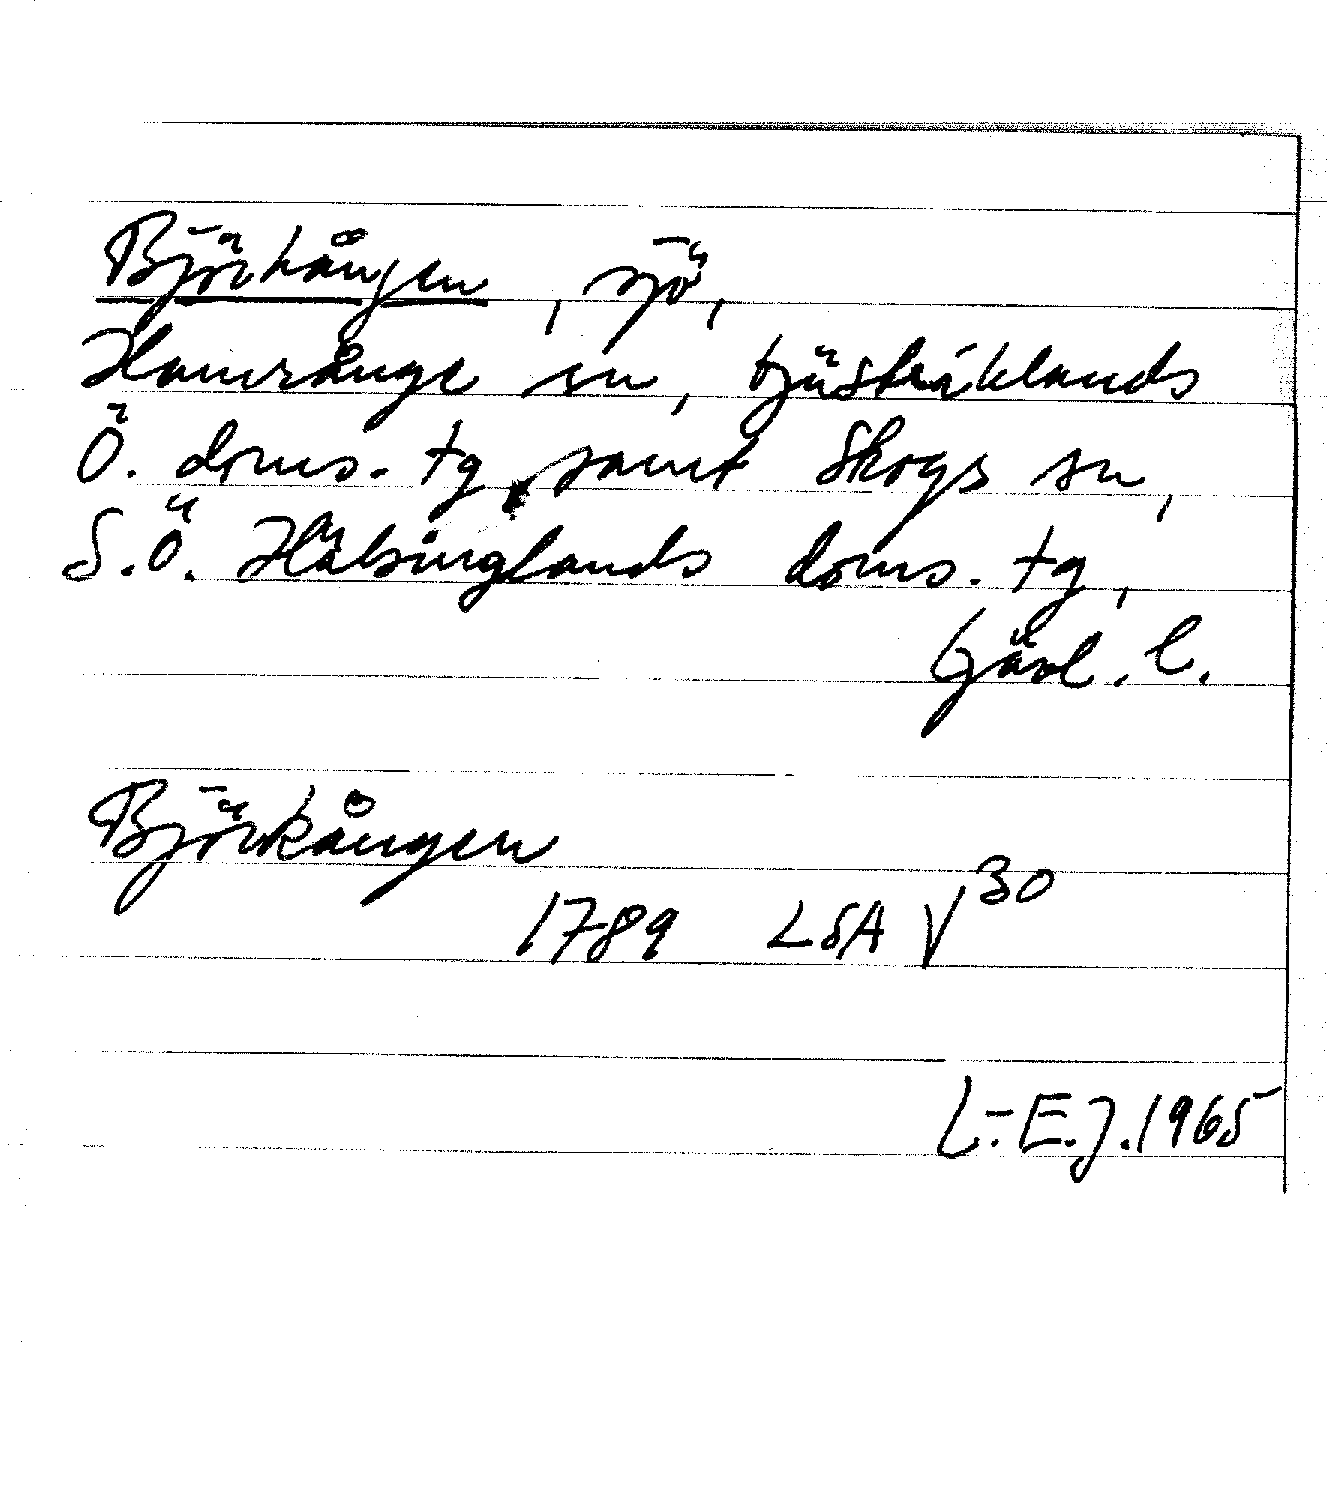 Björkången, sjö,
Hamrånge sn, Gästriklands
Ö. doms. tg samt Skogs sn,
S.Ö. Hälsinglands doms. tg,
Gävl. l.
Björkången
1789 LSA V³⁰
L.-E.J. 1965